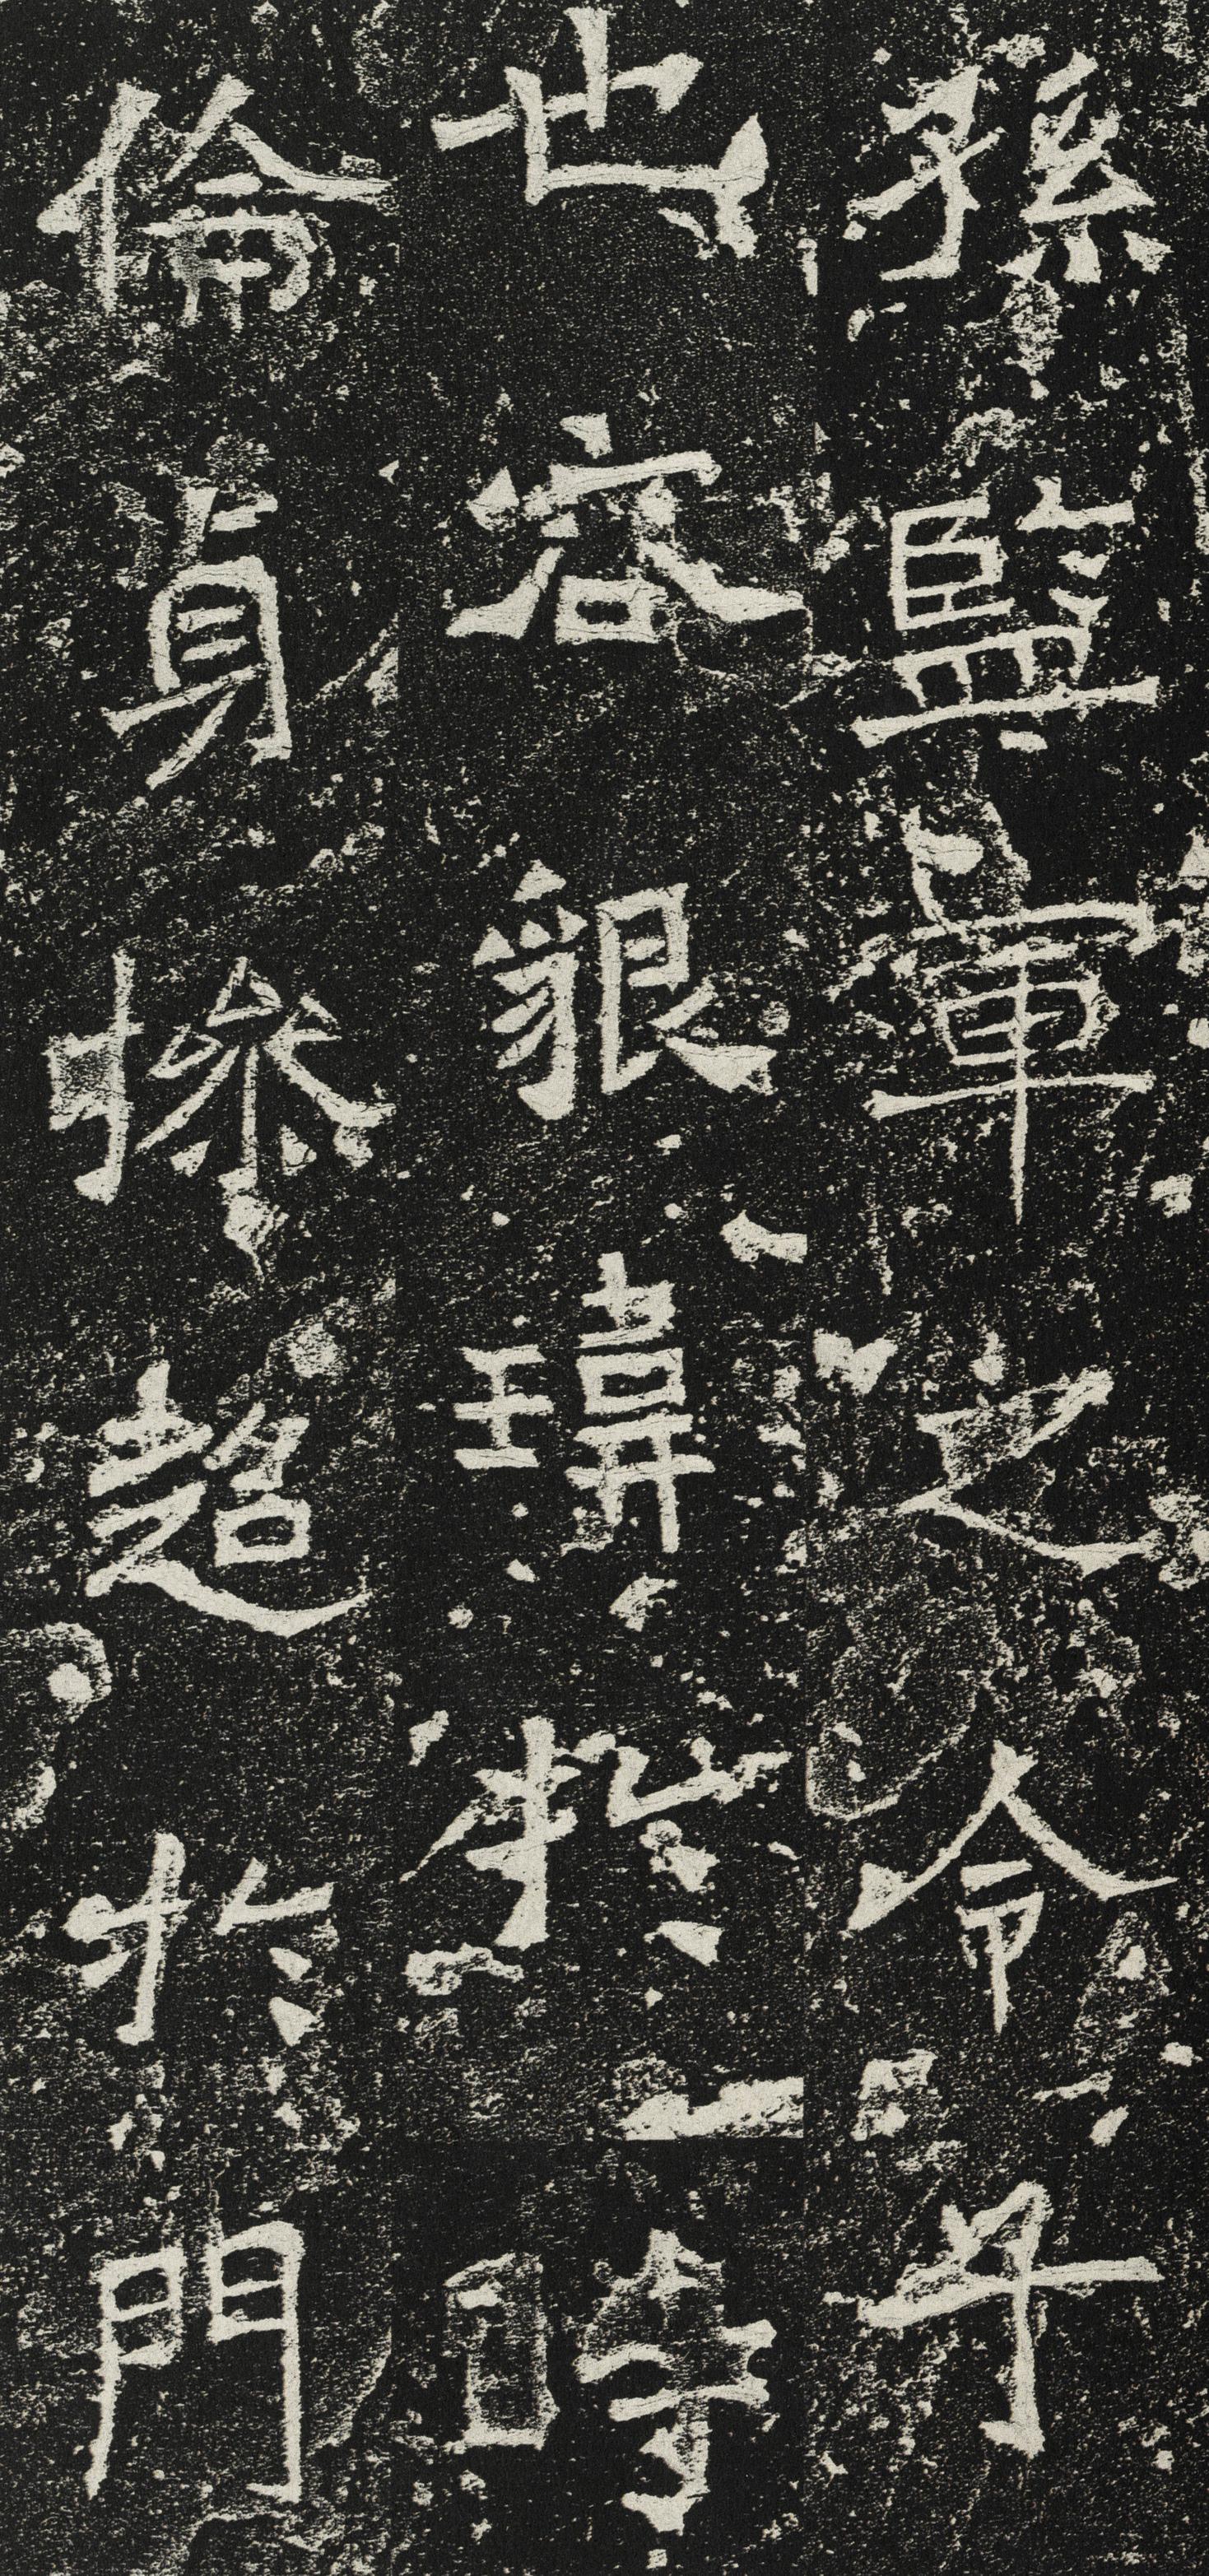 孫監軍之令子
也容貌瑋於時
倫貞操超於門